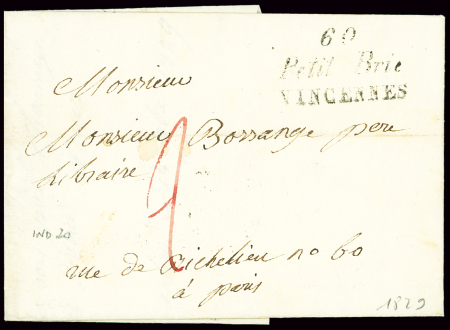 60
Petit Brie
VINCENNES
Monsieur
Monsieur Bossange pere
Libraire
1
IND 20
rue de Richelieu no 60
à paris
1829